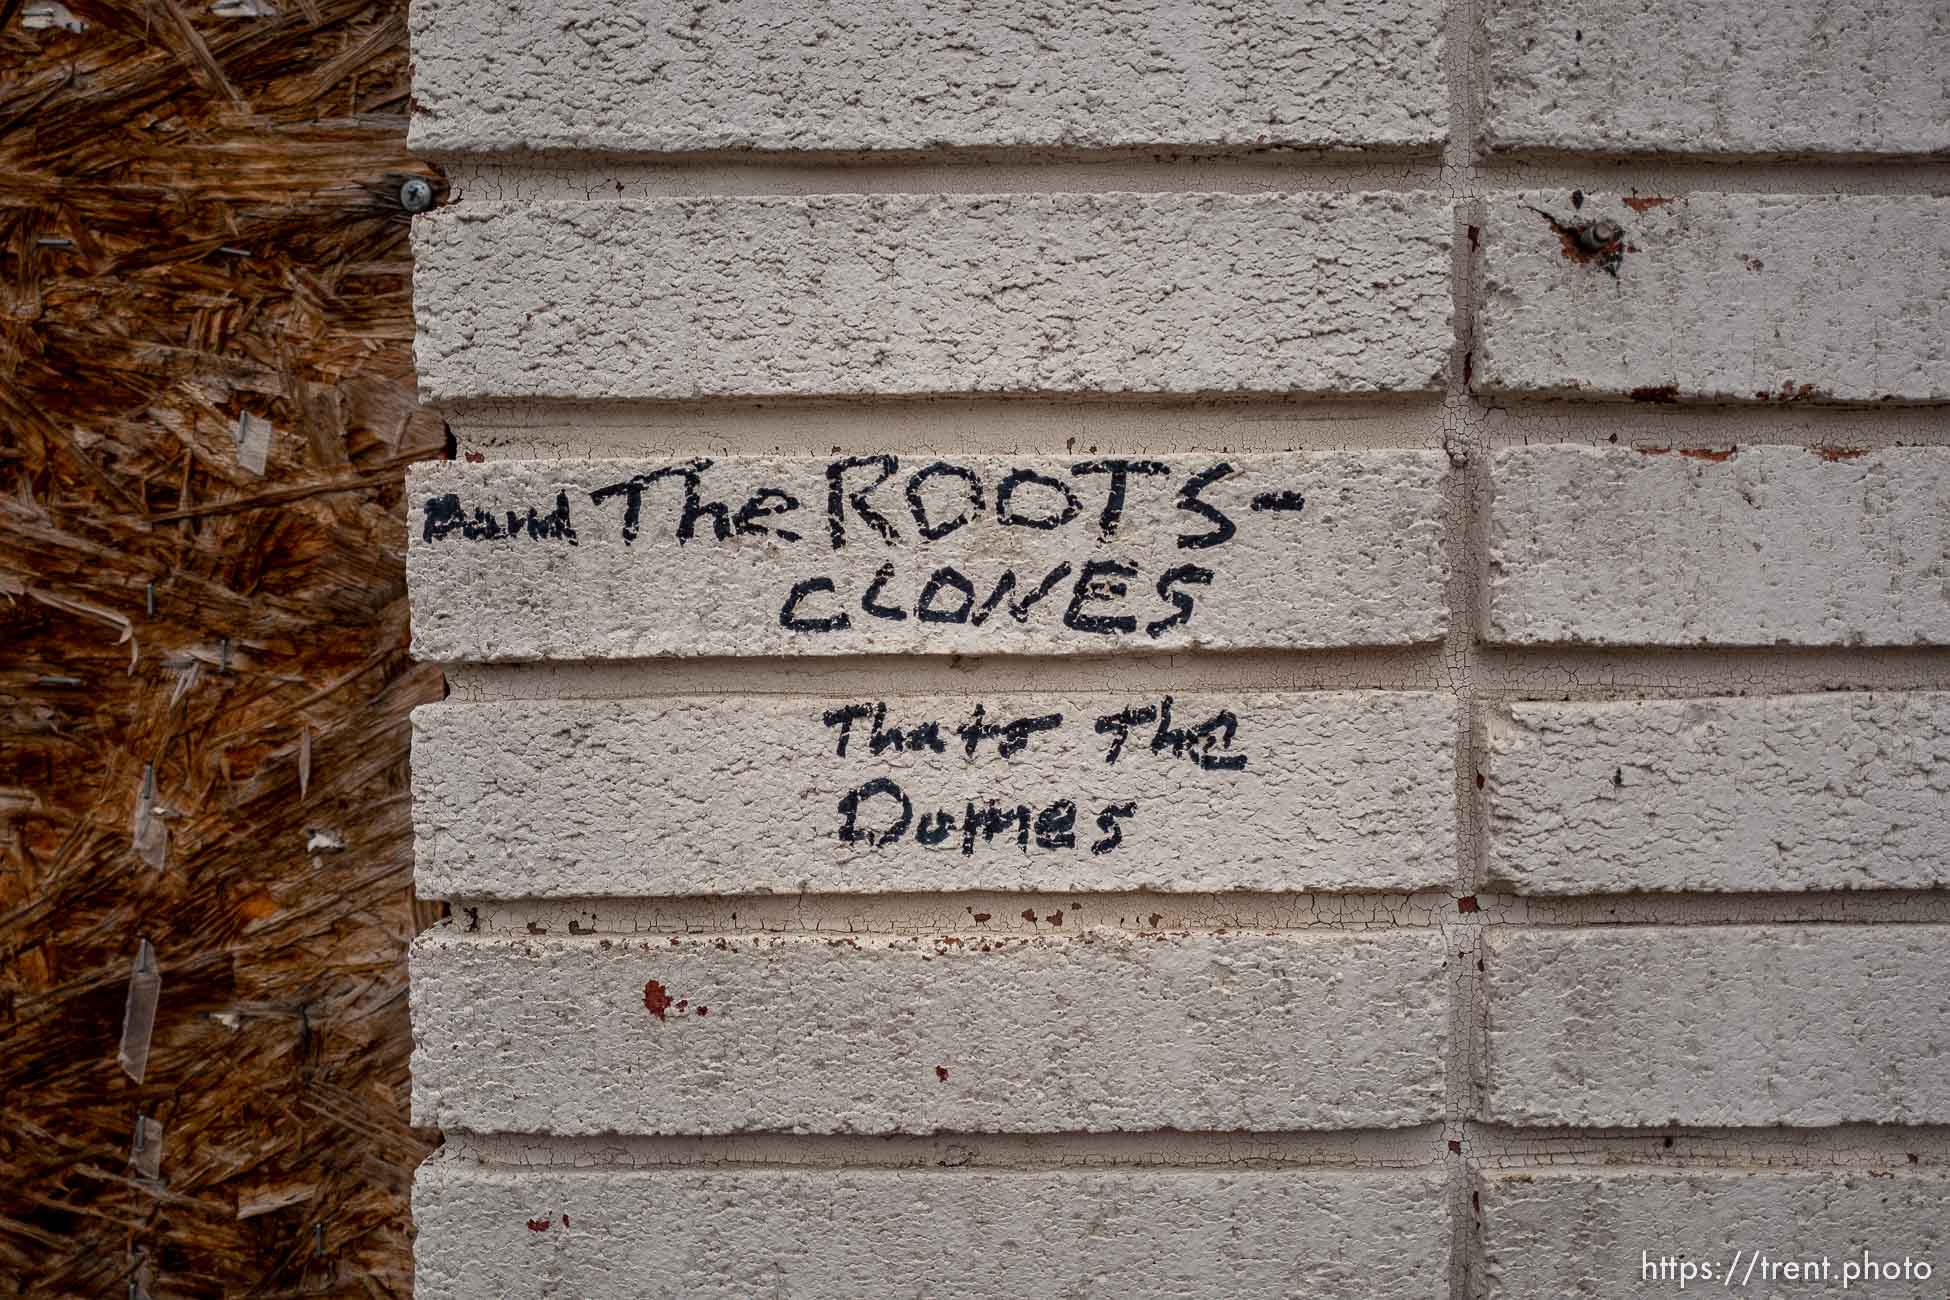 Band The ROOTS-
CLONES
Thats The
Dumes
https://trent.photo